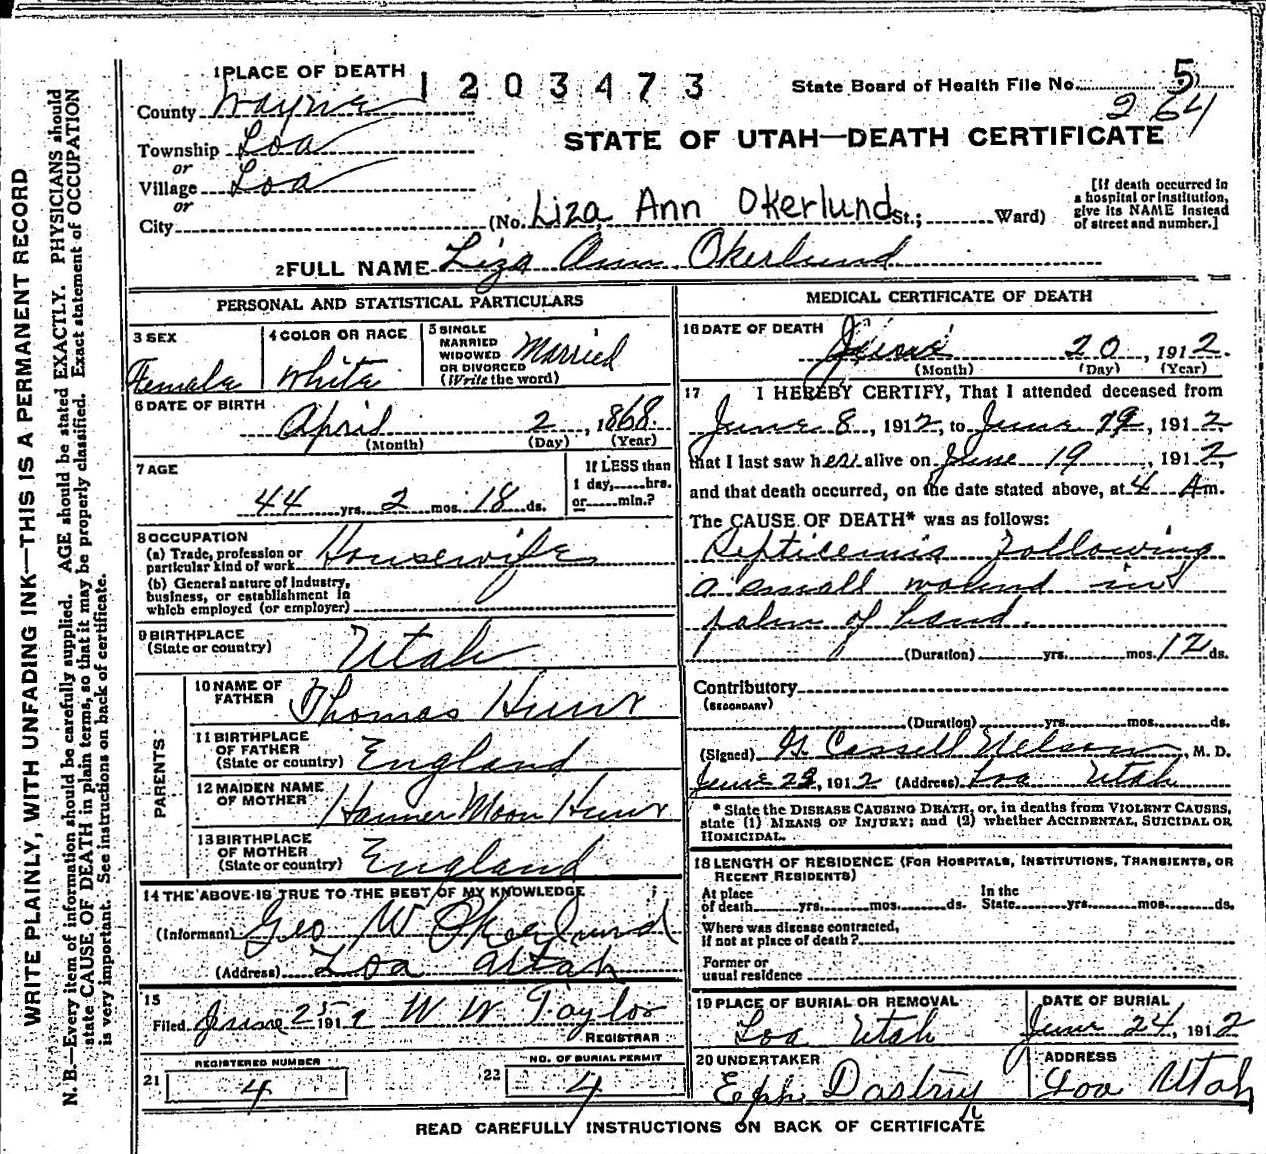 1 PLACE OF DEATH
1203473
State Board of Health File No. 5
264
County Wayne
STATE OF UTAH—DEATH CERTIFICATE
Township Loa
or
Village Loa
or
City (No. Liza Ann Okerlund St.; Ward)
[If death occurred in
a hospital or institution,
give its NAME instead
of street and number.]
2 FULL NAME Liza Ann Okerlund
PERSONAL AND STATISTICAL PARTICULARS
3 SEX
Female
4 COLOR OR RACE
White
5 SINGLE
MARRIED
WIDOWED
OR DIVORCED
(Write the word)
Married
6 DATE OF BIRTH
April 2, 1868
(Month) (Day) (Year)
7 AGE
44 yrs. 2 mos. 18 ds.
If LESS than
1 day, hrs.
or min.?
8 OCCUPATION
(a) Trade, profession or
particular kind of work Housewife
(b) General nature of Industry,
business, or establishment in
which employed (or employer)
9 BIRTHPLACE
(State or country) Utah
PARENTS
10 NAME OF
FATHER Thomas Hunt
11 BIRTHPLACE
OF FATHER
(State or country) England
12 MAIDEN NAME
OF MOTHER Hanner Moon Hunt
13 BIRTHPLACE
OF MOTHER
(State or country) England
14 THE ABOVE IS TRUE TO THE BEST OF MY KNOWLEDGE
(Informant) Geo W Okerlund
(Address) Loa Utah
15
Filed June 25 191 W W Taylor
REGISTRAR
REGISTERED NUMBER
21 4
NO. OF BURIAL PERMIT
22 4
MEDICAL CERTIFICATE OF DEATH
16 DATE OF DEATH
June 20, 1912.
(Month) (Day) (Year)
17 I HEREBY CERTIFY, That I attended deceased from
June 8, 1912, to June 19, 1912
that I last saw her alive on June 19, 1912,
and that death occurred, on the date stated above, at 4 Am.
The CAUSE OF DEATH* was as follows:
Septicemia following
a small wound in
palm of hand.
(Duration) yrs. mos. 12 ds.
Contributory
(SECONDARY)
(Duration) yrs. mos. ds.
(Signed) Cassell Nelson, M. D.
June 23, 1912 (Address) Loa Utah
* State the DISEASE CAUSING DEATH, or, in deaths from VIOLENT CAUSES,
state (1) MEANS OF INJURY; and (2) whether ACCIDENTAL, SUICIDAL OR
HOMICIDAL.
18 LENGTH OF RESIDENCE (FOR HOSPITALS, INSTITUTIONS, TRANSIENTS, OR
RECENT RESIDENTS)
At place
of death yrs. mos. ds.
In the
State yrs. mos. ds.
Where was disease contracted,
if not at place of death?
Former or
usual residence
19 PLACE OF BURIAL OR REMOVAL
Loa Utah
DATE OF BURIAL
June 24, 1912
20 UNDERTAKER
Eph. Dastrup
ADDRESS
Loa Utah
READ CAREFULLY INSTRUCTIONS ON BACK OF CERTIFICATE
WRITE PLAINLY, WITH UNFADING INK—THIS IS A PERMANENT RECORD
N. B.—Every item of information should be carefully supplied. AGE should be stated EXACTLY. PHYSICIANS should
state CAUSE OF DEATH in plain terms, so that it may be properly classified. Exact statement of OCCUPATION
is very important. See instructions on back of certificate.